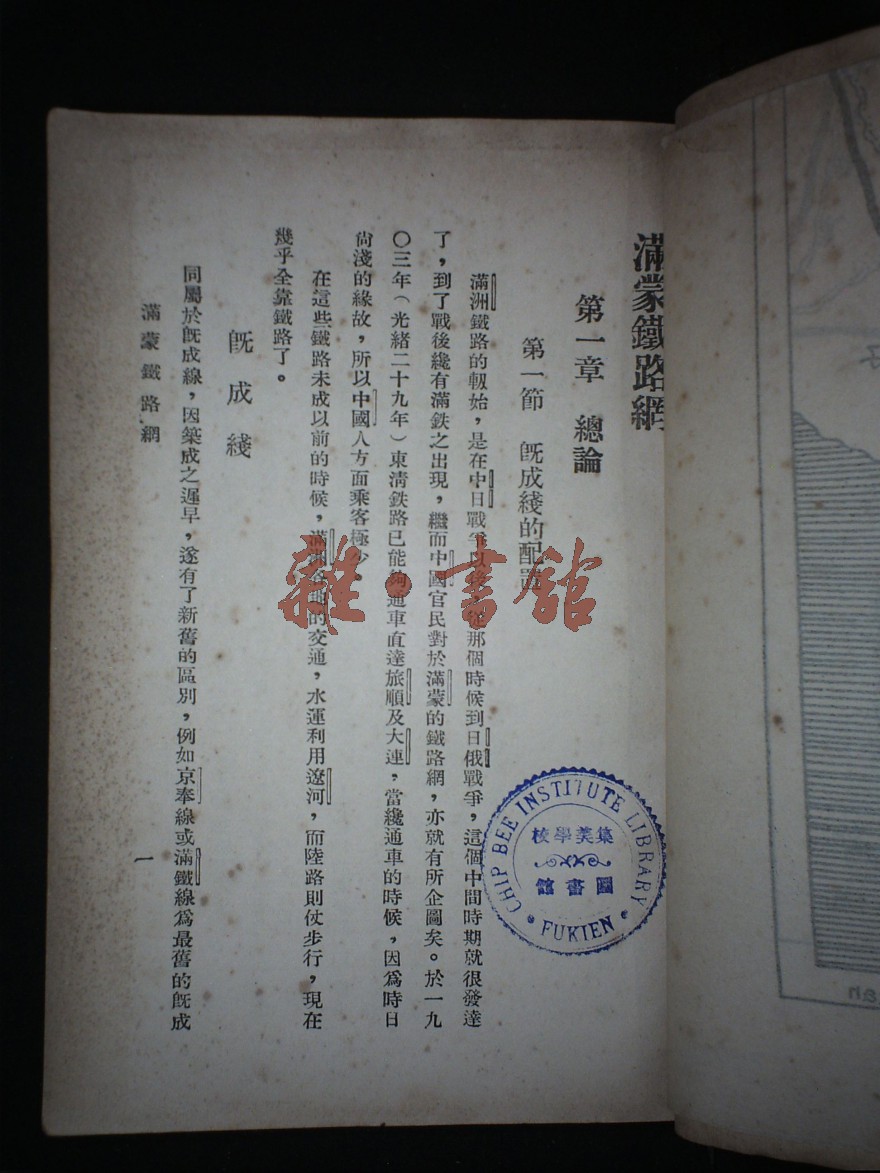 滿蒙鐵路網
第一章 總論
第一節 旣成綫的配置
滿洲鐵路的軔始，是在中日戰爭以後，從那個時候到日俄戰爭，這個中間時期就很發達
了，到了戰後纔有滿鉄之出現，繼而中國官民對於滿蒙的鐵路網，亦就有所企圖矣。於一九
〇三年（光緒二十九年）東清鉄路已能夠通車直達旅順及大連，當纔通車的時候，因爲時日
尙淺的緣故，所以中國人方面乘客極少。
在這些鐵路未成以前的時候，滿洲各地的交通，水運利用遼河，而陸路則仗步行，現在
幾乎全靠鐵路了。
旣成綫
同屬於旣成線，因築成之遲早，遂有了新舊的區別，例如京奉線或滿鐵線爲最舊的旣成
滿蒙鐵路網
一
雜·書館
CHIP BEE INSTITUTE LIBRARY
集美學校
圖書館
FUKIEN